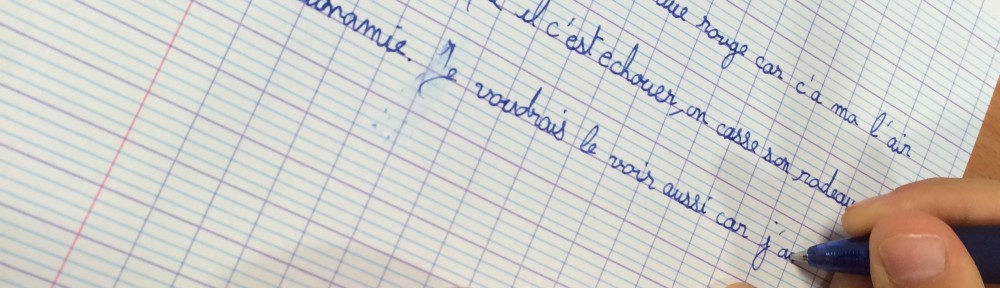 rouge car c'a ma l'air
il c'est echouer, on casse son radeau
Je voudrais le voir aussi car j'a